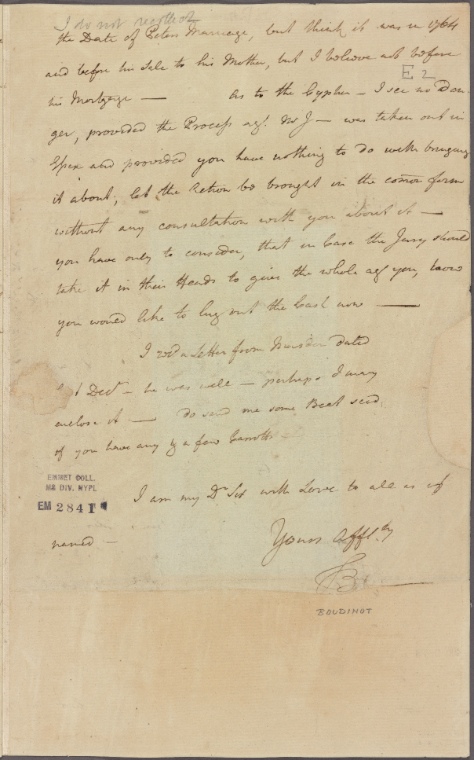 I do not recollect
the Date of Peters Marriage, but think it was in 1764
and before his Sale to his Mother, but I believe not before
E 2
his Mortgage — As to the Cypher — I see no Dan-
ger, provided the Process agt. Mr J — was taken out in
Essex and provided you have nothing to do with bringing
it about, let the Action be brought in the common form
without any consultation with you about it —
you have only to consider, that in Case the Jury should
take it in their Heads to give the whole agt you, how
you would like to lug out the Cash now —
I recd a Letter from dated
Decr — he was well — perhaps I may
enclose it — do send me some Beet seed
if you have any & a few Carrotts
EMMET COLL.
MS DIV. NYPL
EM 2841
I am my Dr Sir with Love to all as if
named —
Yours Afftly
EB
BOUDINOT